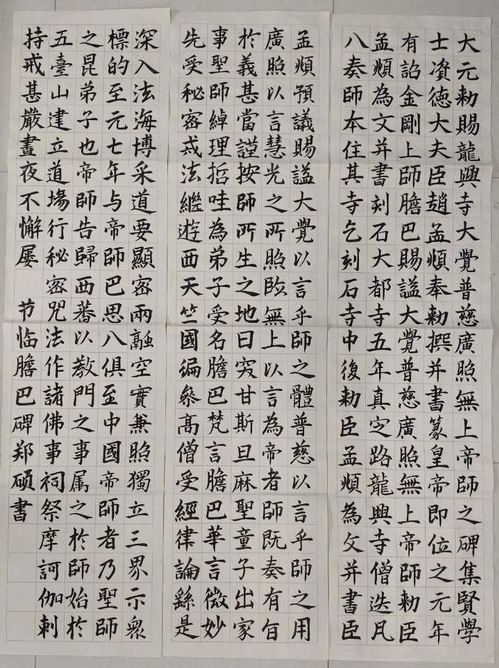 大元勅賜龍興寺大覺普慈廣照無上帝師之碑集賢學
士資德大夫臣趙孟頫奉勅撰并書篆皇帝即位之元年
有詔金剛上師膽巴賜謚大覺普慈廣照無上帝師勅臣
孟頫為文并書刻石大都寺五年真定路龍興寺僧迭凡
八奏師本住其寺乞刻石寺中復勅臣孟頫為文并書臣
孟頫預議賜謚大覺以言乎師之體普慈以言乎師之用
廣照以言慧光之所照臨無上以言為帝者師既奏有旨
於義甚當謹按師所生之地曰突甘斯旦麻聖童子出家
事聖師綽理哲哇為弟子受名膽巴梵言膽巴華言微妙
先受秘密戒法繼遊西天竺國徧參高僧受經律論繇是
深入法海博采道要顯密兩融空實兼照獨立三界示衆
標的至元七年与帝師巴思八俱至中國帝師者乃聖師
之昆弟子也帝師告歸西蕃以教門之事属之於師始於
五臺山建立道場行秘密咒法作諸佛事祠祭摩訶伽剌
持戒甚嚴晝夜不懈屡 节临膽巴碑郑硕書